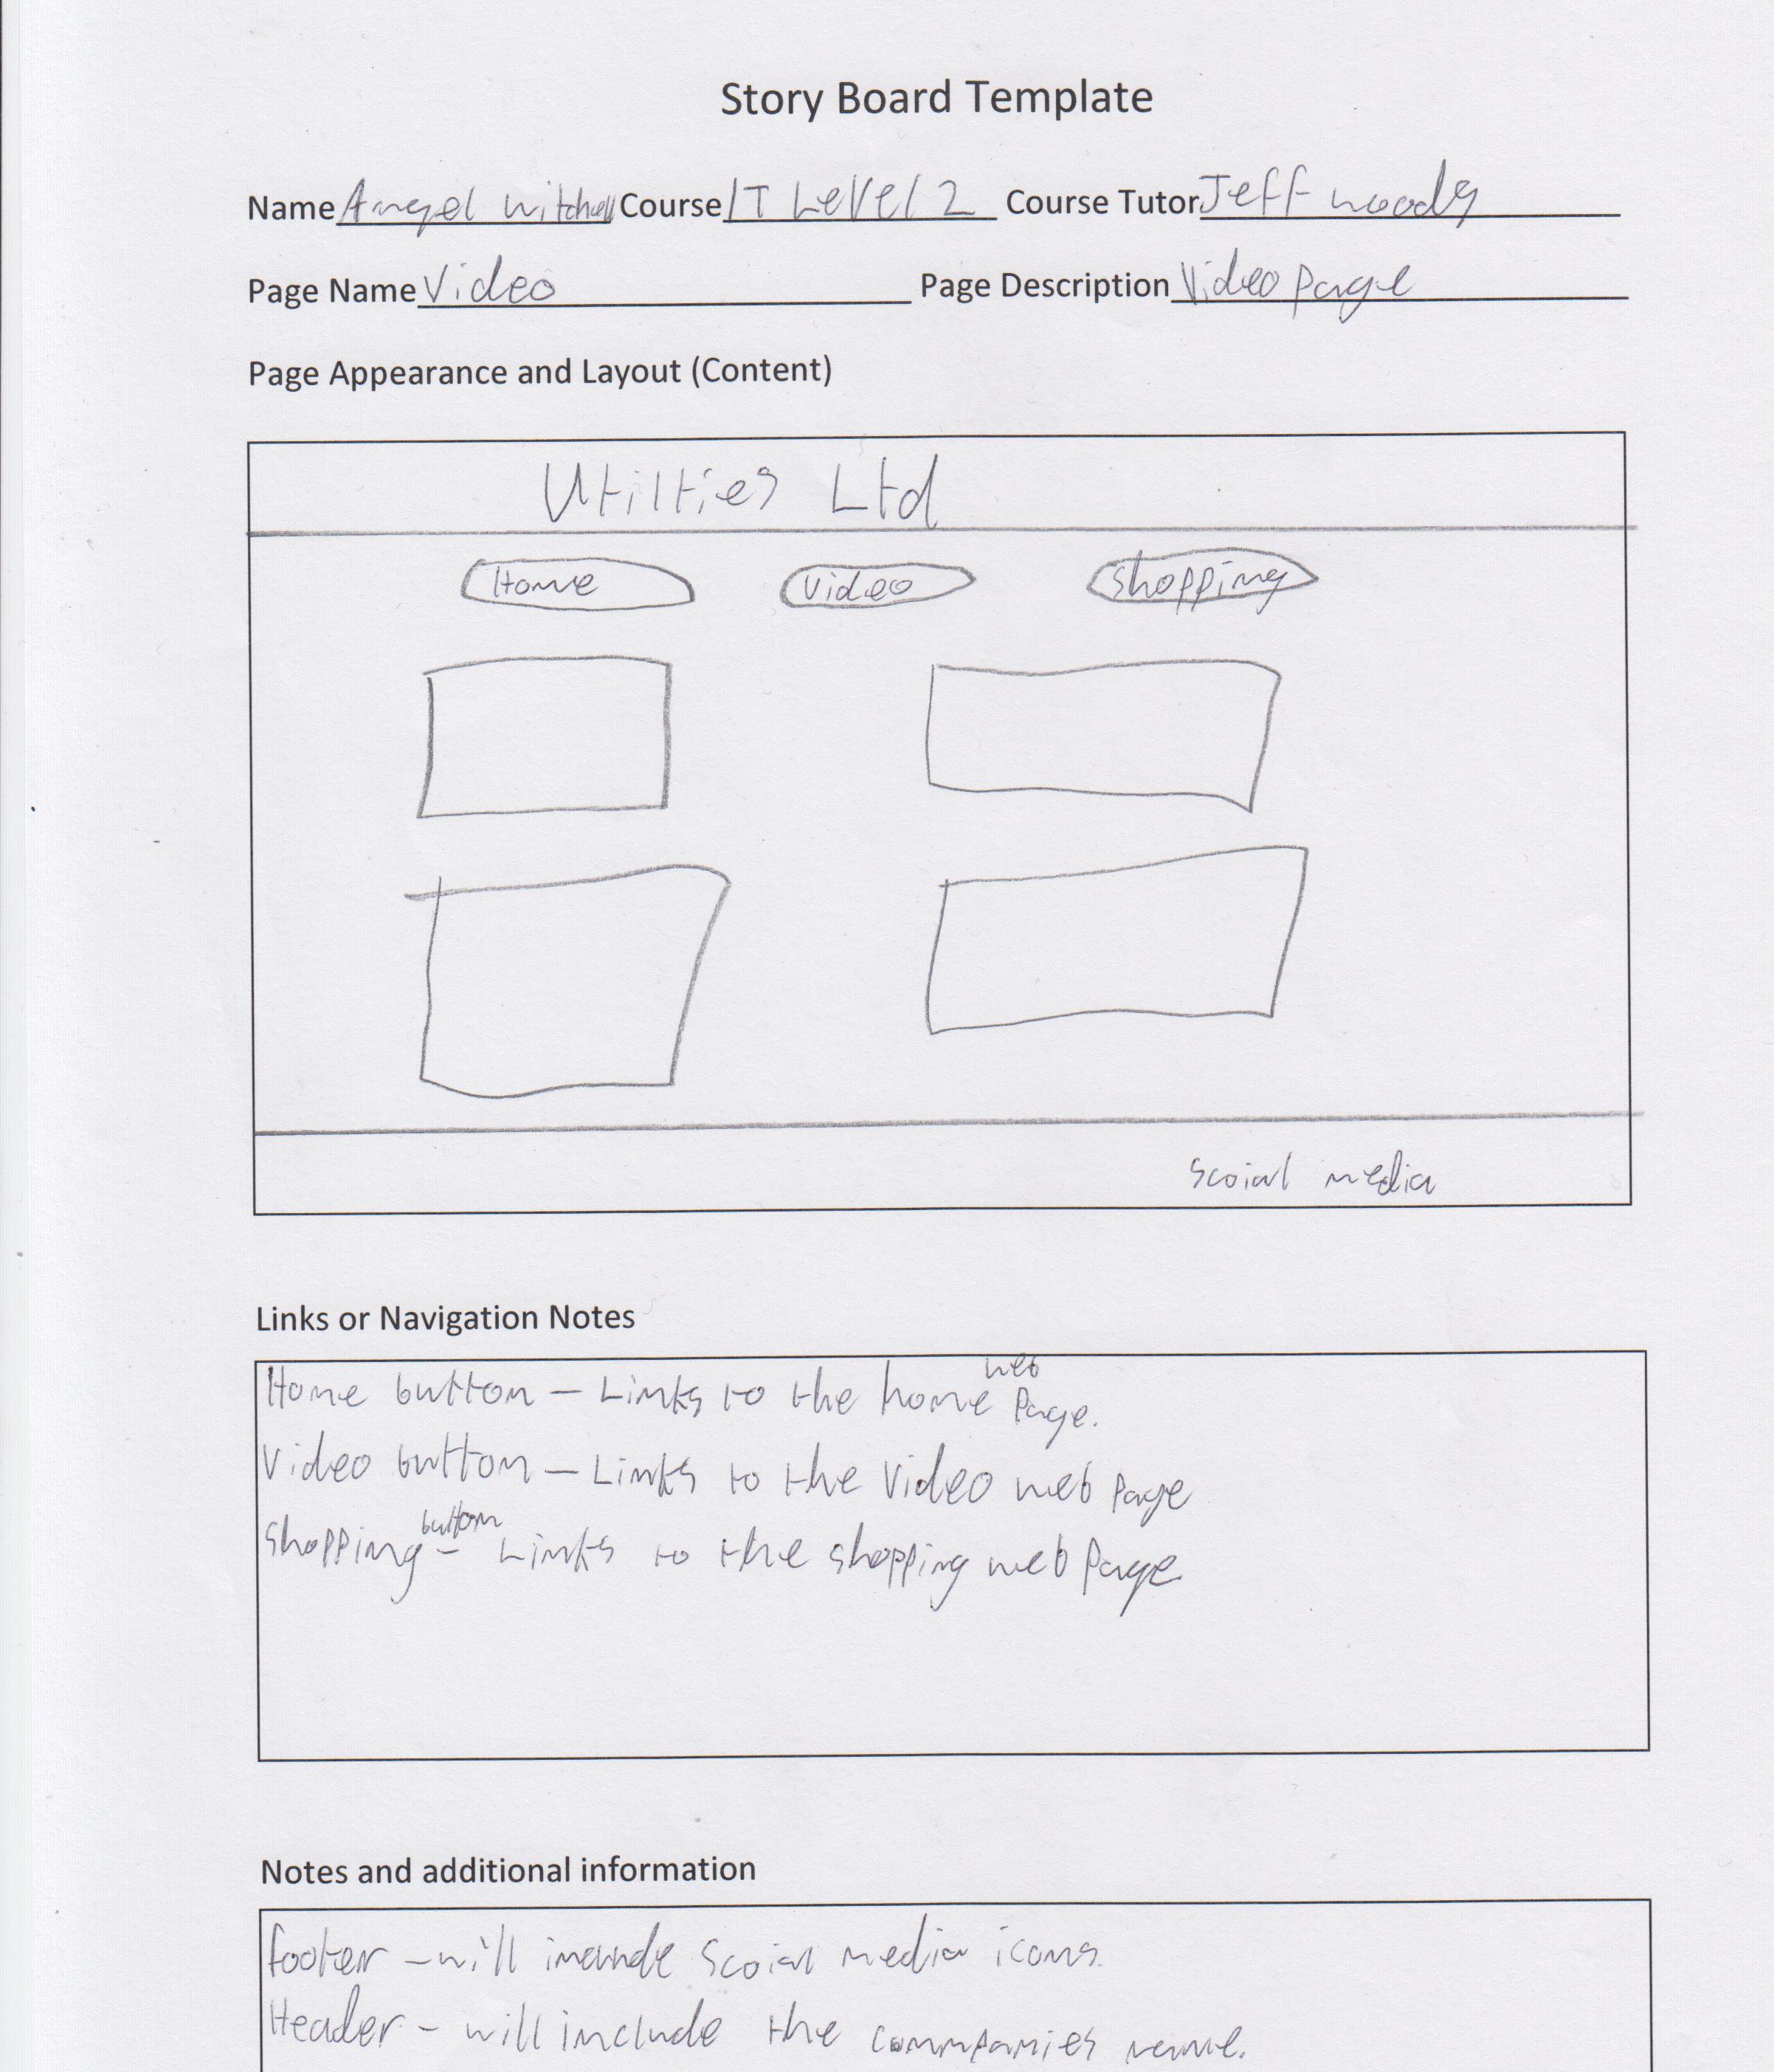 Story Board Template
Name Angel Mitchell Course IT Level 2 Course Tutor Jeff Woods
Page Name Video Page Description Video page
Page Appearance and Layout (Content)
Utilties Ltd
Home Video Shopping
Scoial media
Links or Navigation Notes
Home button - Links to the home web Page.
Video button - Links to the Video web page
Shopping button - Links to the shopping web page
Notes and additional information
footer - will include Scoial media icons.
Header - will include the companies name.